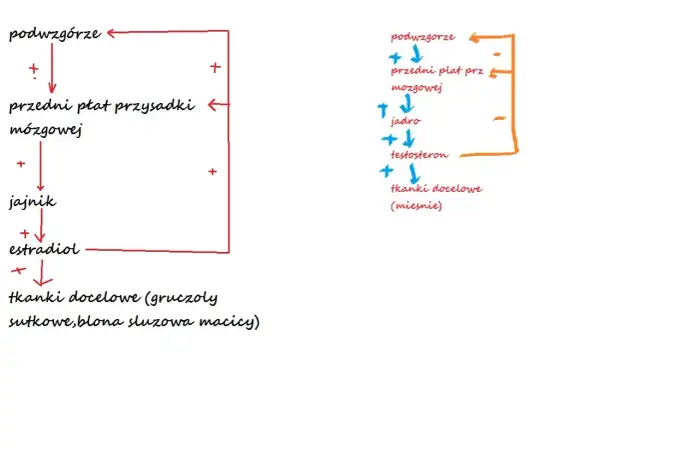 podwzgórze
+
+
przedni płat przysadki
mózgowej
+
+
jajnik
+
estradiol
+
tkanki docelowe (gruczoly
sutkowe,blona sluzowa macicy)
podwzgorze
+
-
przedni plat prz
mozgowej
+
-
jadro
+
testosteron
+
tkanki docelowe
(miesnie)